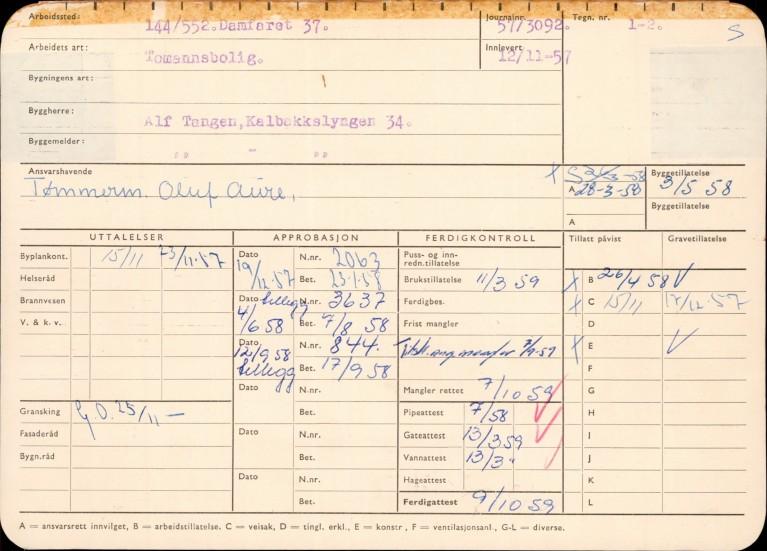 Arbeidssted: 144/552.Damfaret 37. Journalnr. 57/3092. Tegn. nr. 1-2. S
Arbeidets art: Tomannsbolig. Innlevert 12/11-57
Bygningens art:
Byggherre: Alf Tangen,Kalbakkslyngen 34.
Byggemelder: " - "
Ansvarshavende Tømmerm. Oluf Aure, X
A 28-3-58 Byggetillatelse 3/5 58
A Byggetillatelse
UTTALELSER APPROBASJON FERDIGKONTROLL Tillatt påvist Gravetillatelse
Byplankont. 15/11 23/11-57 Dato 19/12-57 N.nr. 2063 Puss- og inn-redn.tillatelse
Helseråd Bet. 23-1-58 Brukstillatelse 11/3 59 X B 26/4 58 V
Brannvesen Dato tillegg 4/6 58 N.nr. 3637 Ferdigbes. X C 15/11 17/12-57
V. & k. v. Bet. 7/8 58 Frist mangler D
Dato 12/9 58 tillegg N.nr. 844. X E V
Bet. 17/9 58 F
Dato N.nr. Mangler rettet 7/10 59 G
Gransking G.O. 25/11 — Bet. Pipeattest 7/58 H
Fasaderåd Dato N.nr. Gateattest 13/3 59 I
Bygn.råd Bet. Vannattest 13/3 " J
Dato N.nr. Hageattest K
Bet. Ferdigattest 9/10 59 L
A = ansvarsrett innvilget, B = arbeidstillatelse. C = veisak, D = tingl. erkl., E = konstr , F = ventilasjonsanl., G-L = diverse.